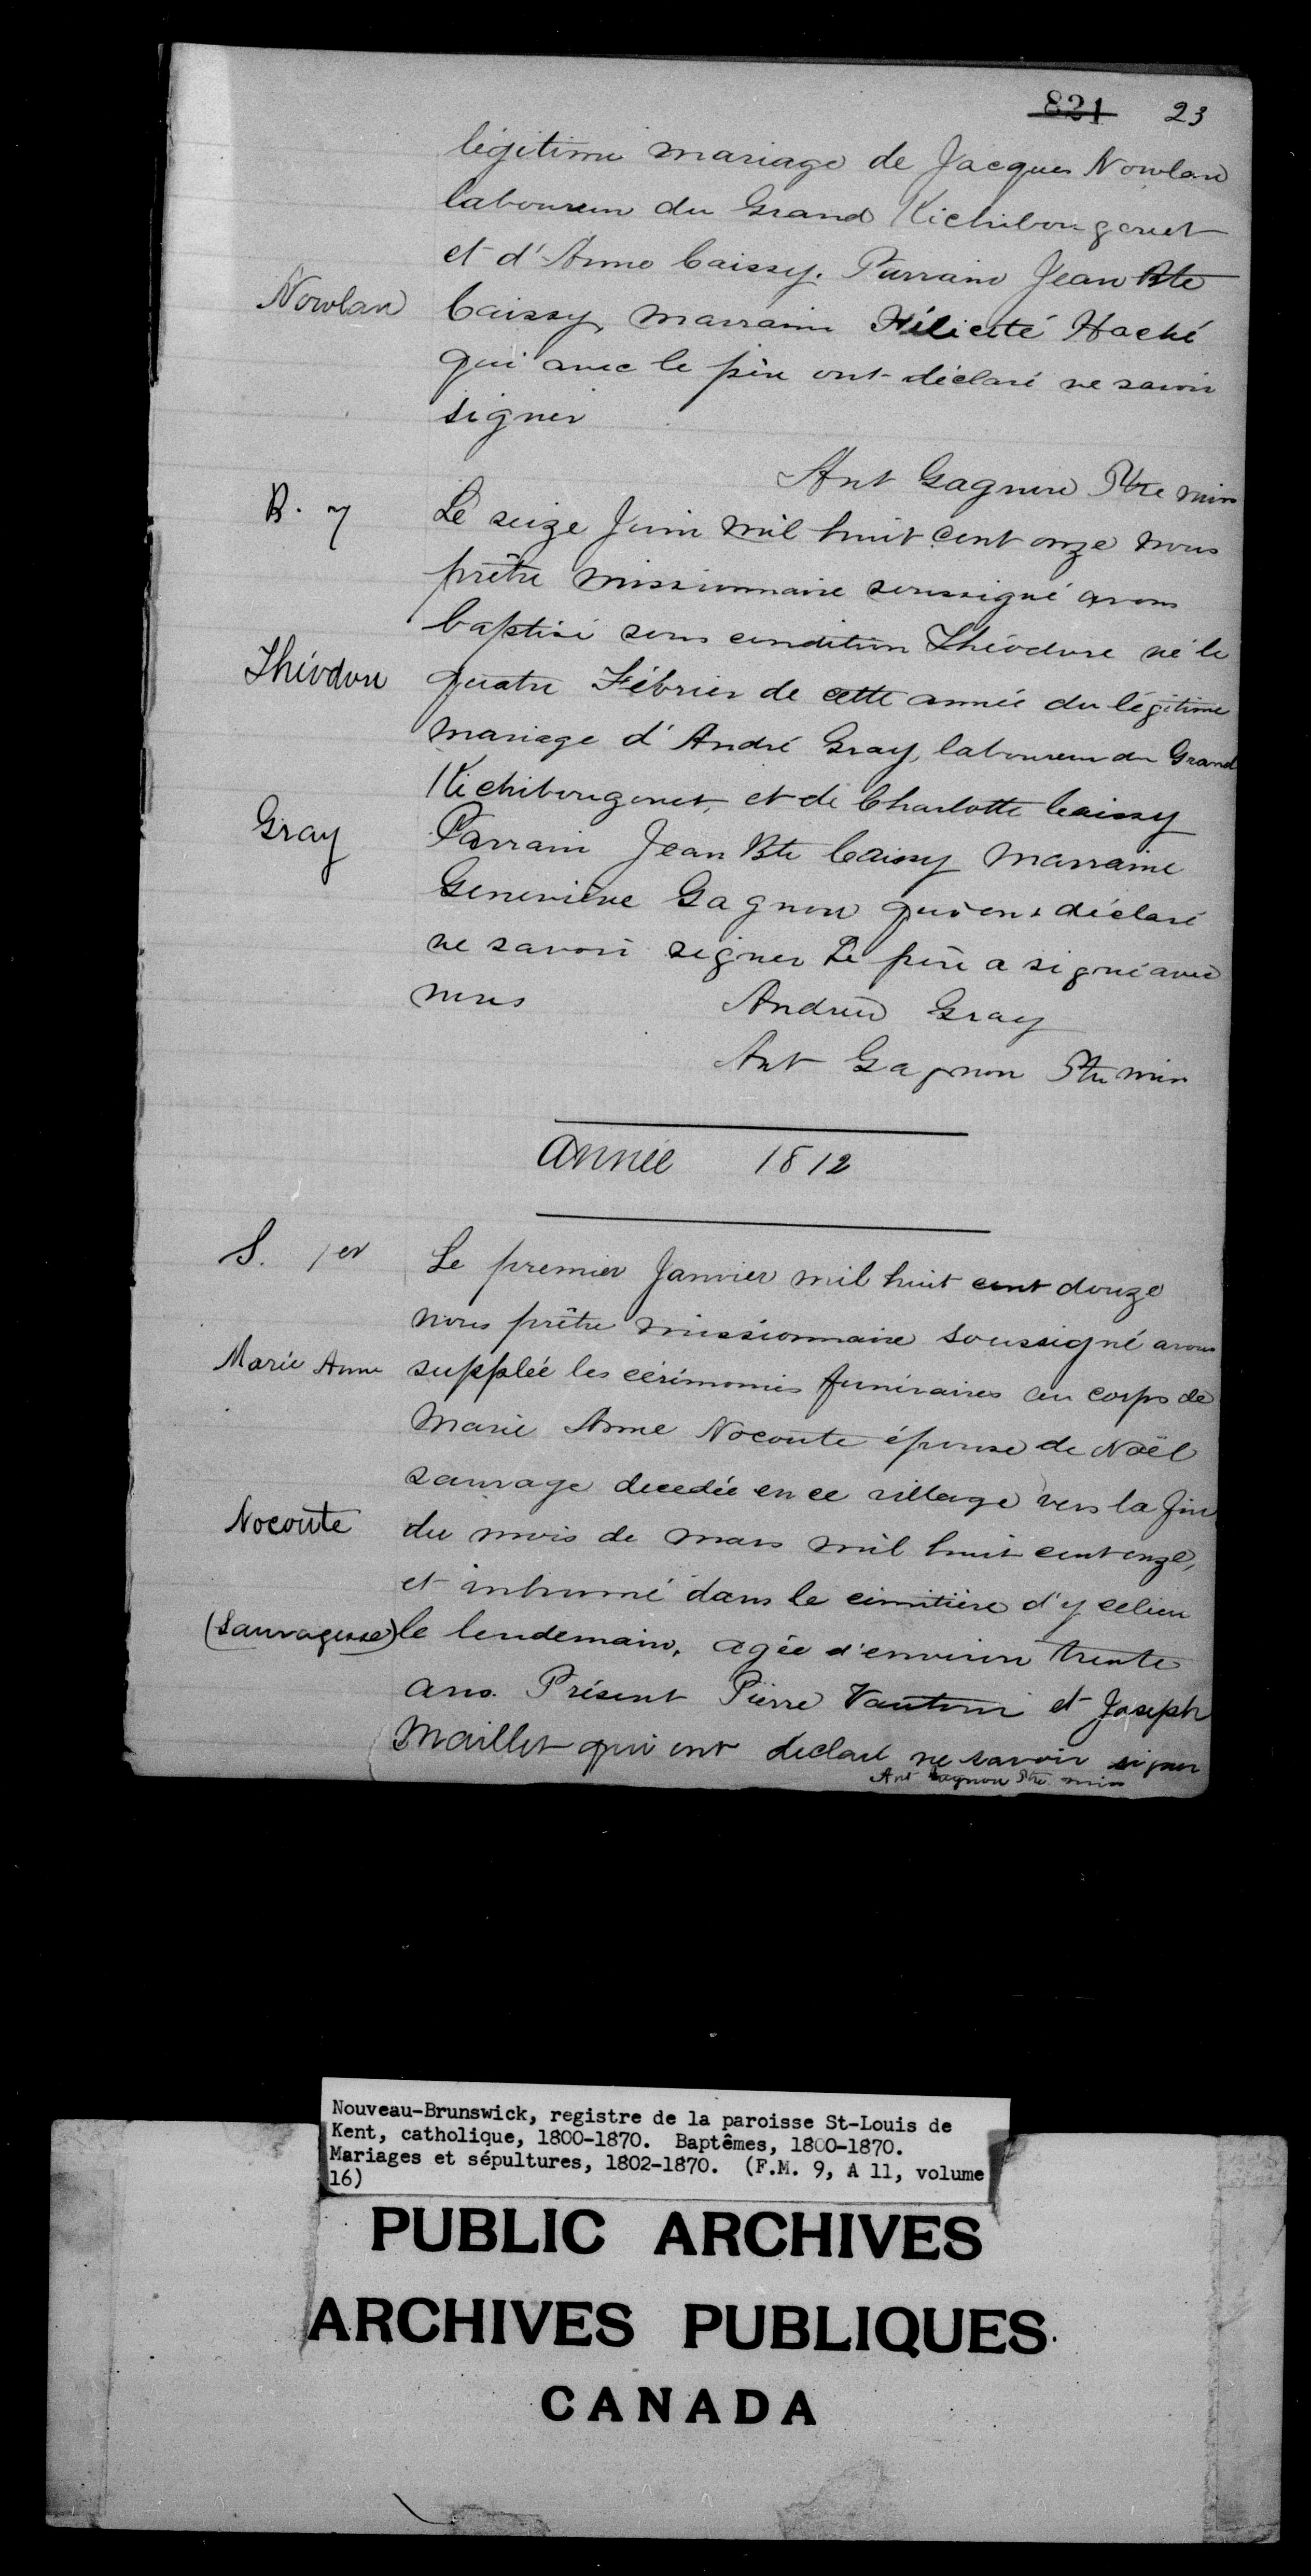 821 23
légitime mariage de Jacques Nowlan
laboureur du Grand Kichibougouet
et d'Anne Caissy. Parrain Jean Bte
Nowlan Caissy, marraine Félicité Haché
qui avec le père ont déclaré ne savoir
signer
Ant Gagnon Ptre miss
B. 7 Le seize Juin mil huit cent onze nous
prêtre missionnaire soussigné avons
baptisé sous condition Théodore né le
Théodore quatre Février de cette année du légitime
mariage d'André Gray, laboureur du Grand
Kichibougouet, et de Charlotte Caissy
Gray Parrain Jean Bte Caissy Marraine
Geneviève Gagnon qui ont déclaré
ne savoir signer Le père a signé avec
nous Andrew Gray
Ant Gagnon Ptre miss
Année 1812
S. 1er Le premier Janvier mil huit cent douze
nous prêtre missionnaire soussigné avons
Marie Anne supplée les cérémonies funéraires au corps de
Marie Anne Nocoute épouse de Noël
sauvage decedée en ce village vers la fin
Nocoute du mois de mars mil huit cent onze,
et inhumé dans le cimitière d'y celieu
(Sauvagesse) le lendemain, agée d'environ trente
ans. Présent Pierre Vautour et Joseph
Maillet qui ont declaré ne savoir signer
Ant Gagnon Ptre miss
Nouveau-Brunswick, registre de la paroisse St-Louis de
Kent, catholique, 1800-1870. Baptêmes, 1800-1870.
Mariages et sépultures, 1802-1870. (F.M. 9, A 11, volume
16)
PUBLIC ARCHIVES
ARCHIVES PUBLIQUES
CANADA